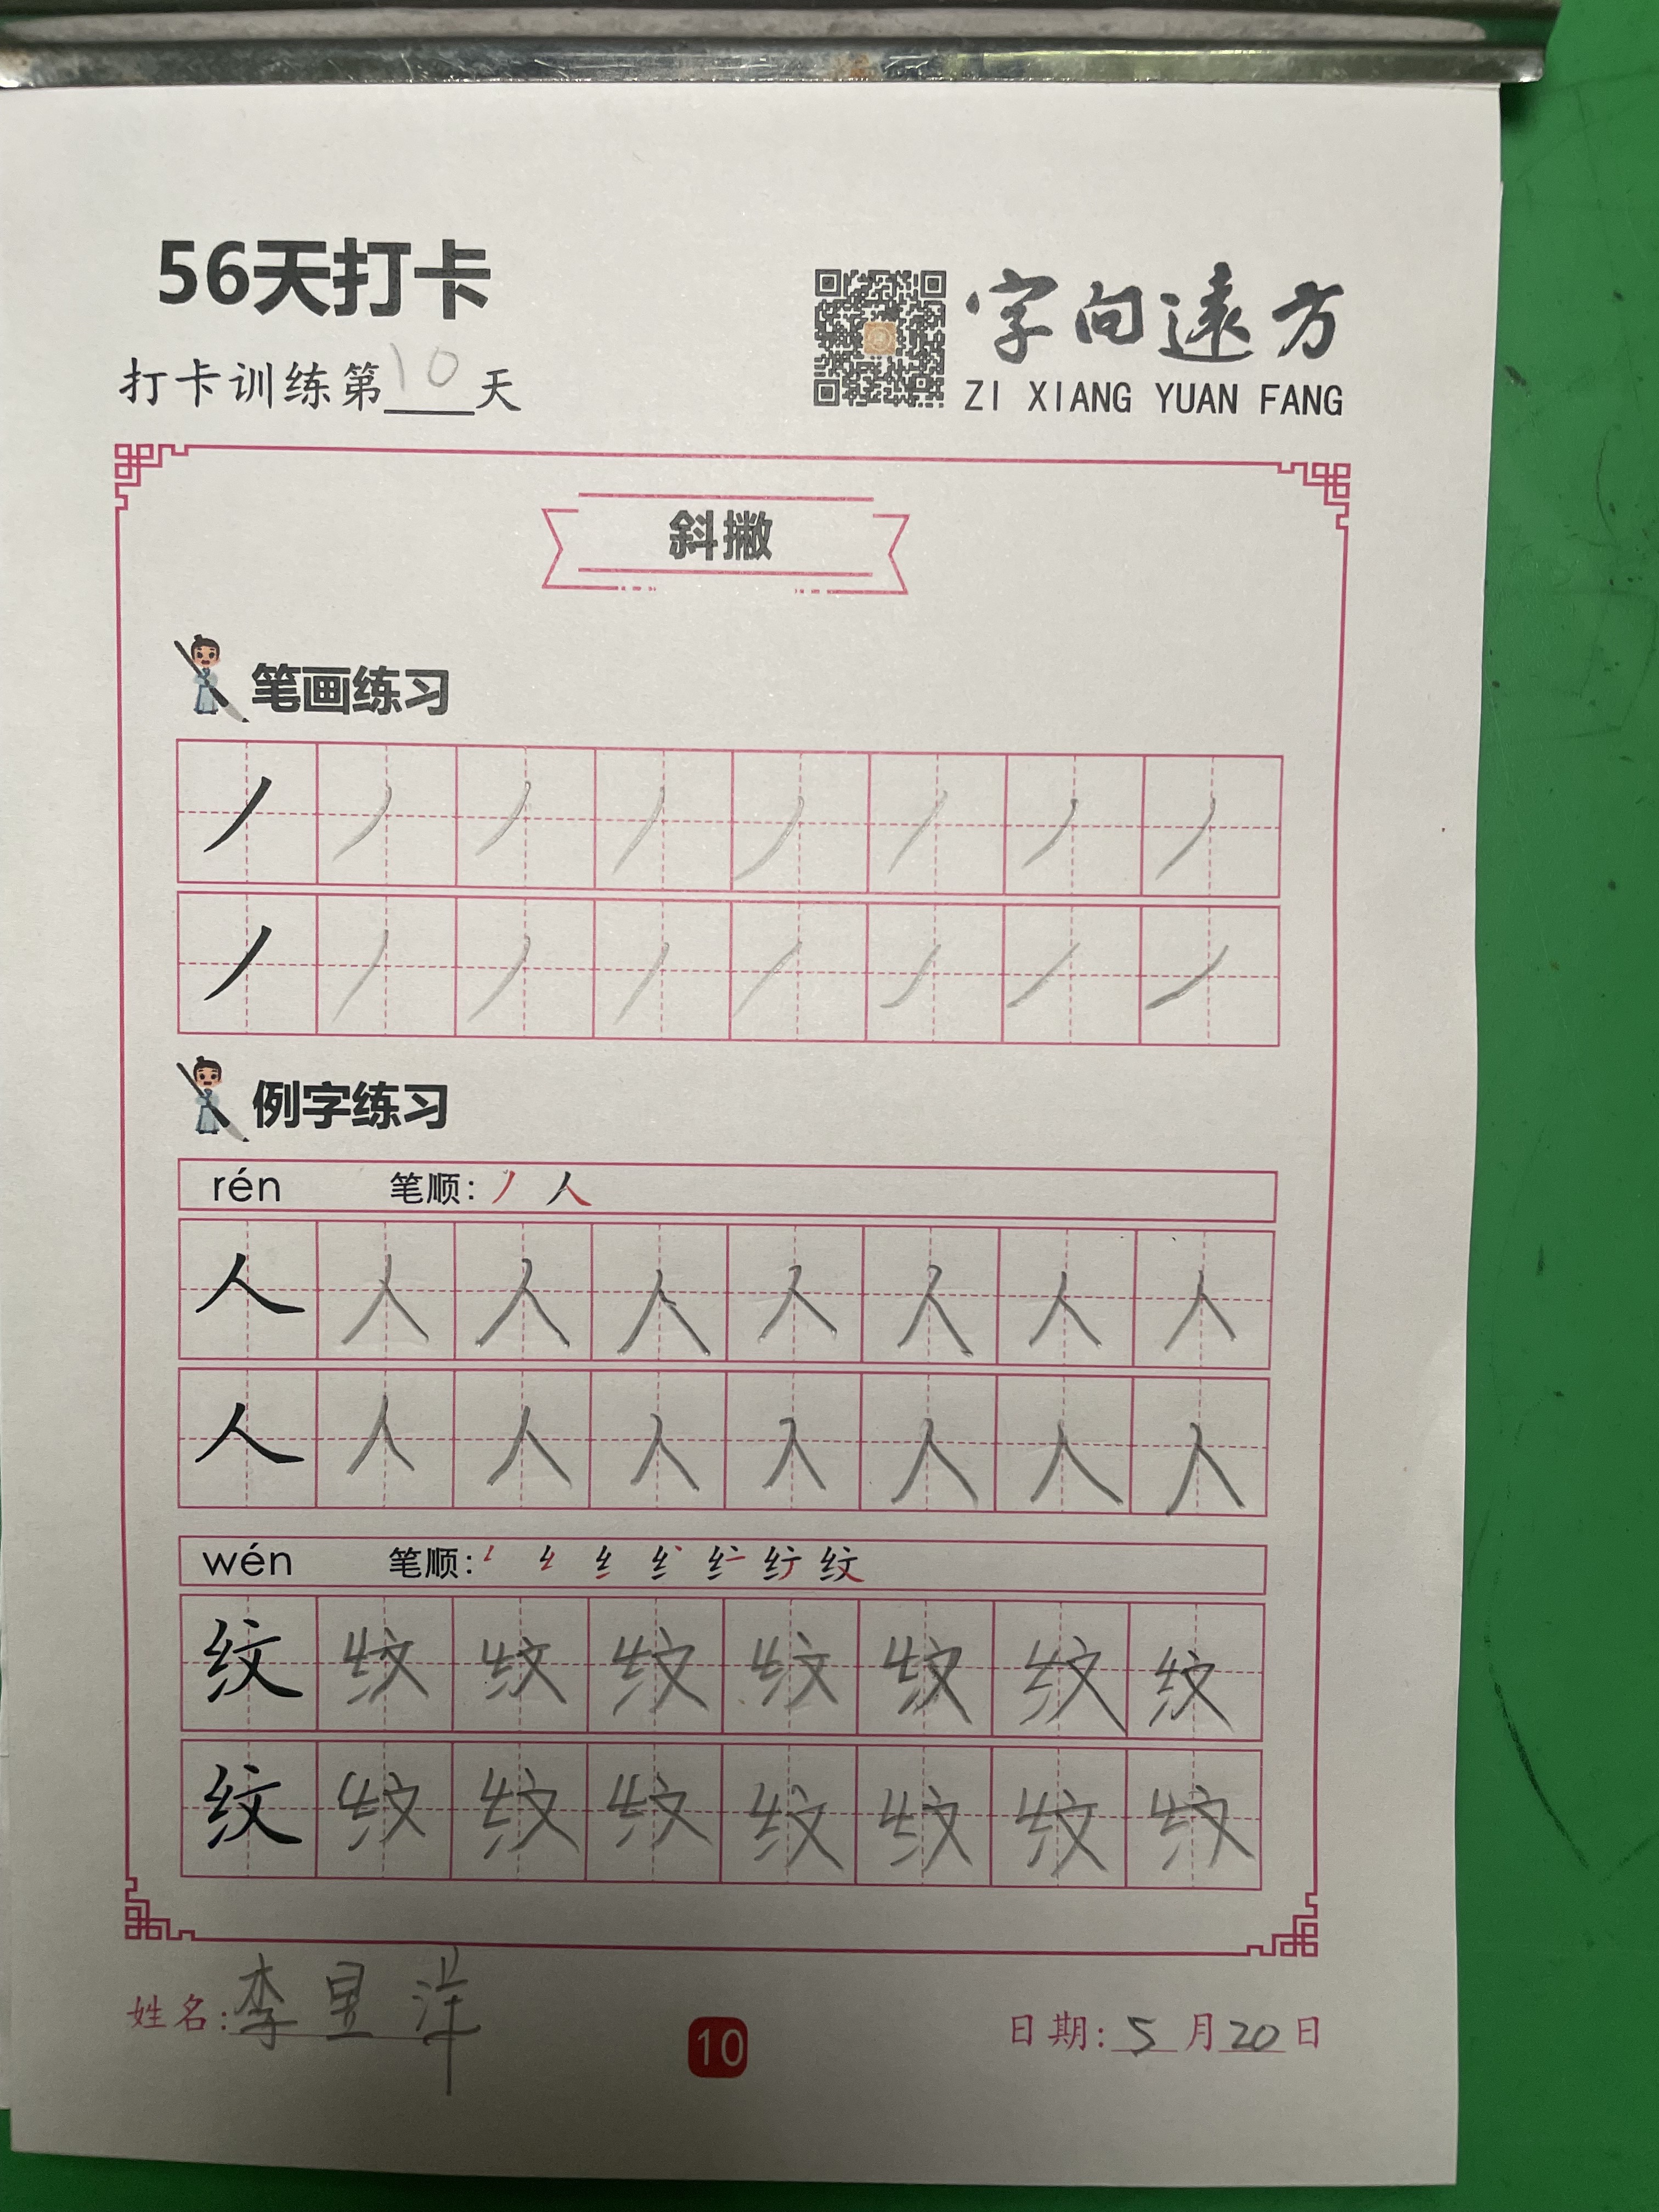 56天打卡
打卡训练第10天
字向遠方
ZI XIANG YUAN FANG
斜撇
笔画练习
丿丿丿丿丿丿丿丿
丿丿丿丿丿丿丿丿
例字练习
rén 笔顺: 丿 人
人人人人人人人人
人人人人人人人人
wén 笔顺: 纹
纹纹纹纹纹纹纹纹
纹纹纹纹纹纹纹纹
姓名: 李昱洋
10
日期: 5月20日